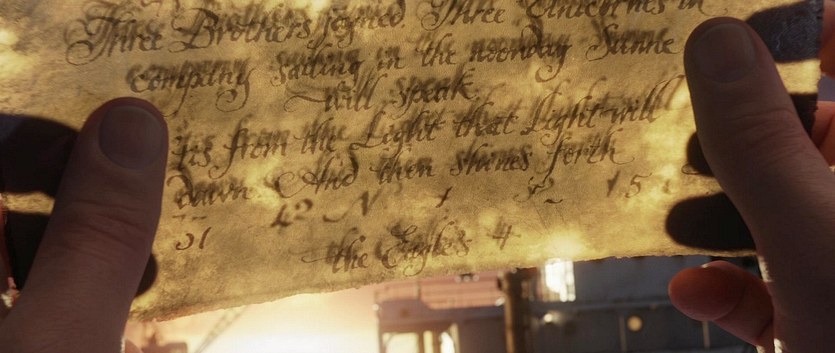 Three Brothers joyned. Three Unicornes in
company sailing in the noonday Sunne
will speak.
Tis from the Light that Light will
dawn. And then shines forth
42 N
51
the Eagle's +